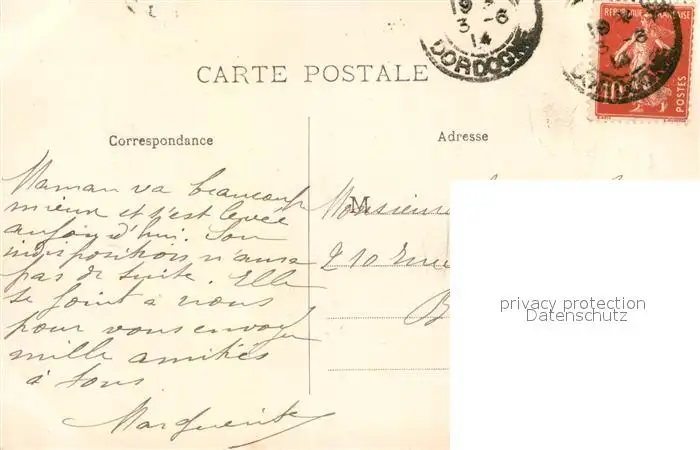 19
3 - 6
14
DORDOGNE
19
3 - 6
14
REPUBLIQUE FRANÇAISE
10
POSTES
CARTE POSTALE
Correspondance
Adresse
Maman va beaucoup
mieux et s'est levée
aujourd'hui. Son
indisposition n'aura
pas de suite. Elle
se joint à nous
pour vous envoyer
mille amitiés
à tous
Marguerite
M
Monsieur
210 rue
B
privacy protection
Datenschutz